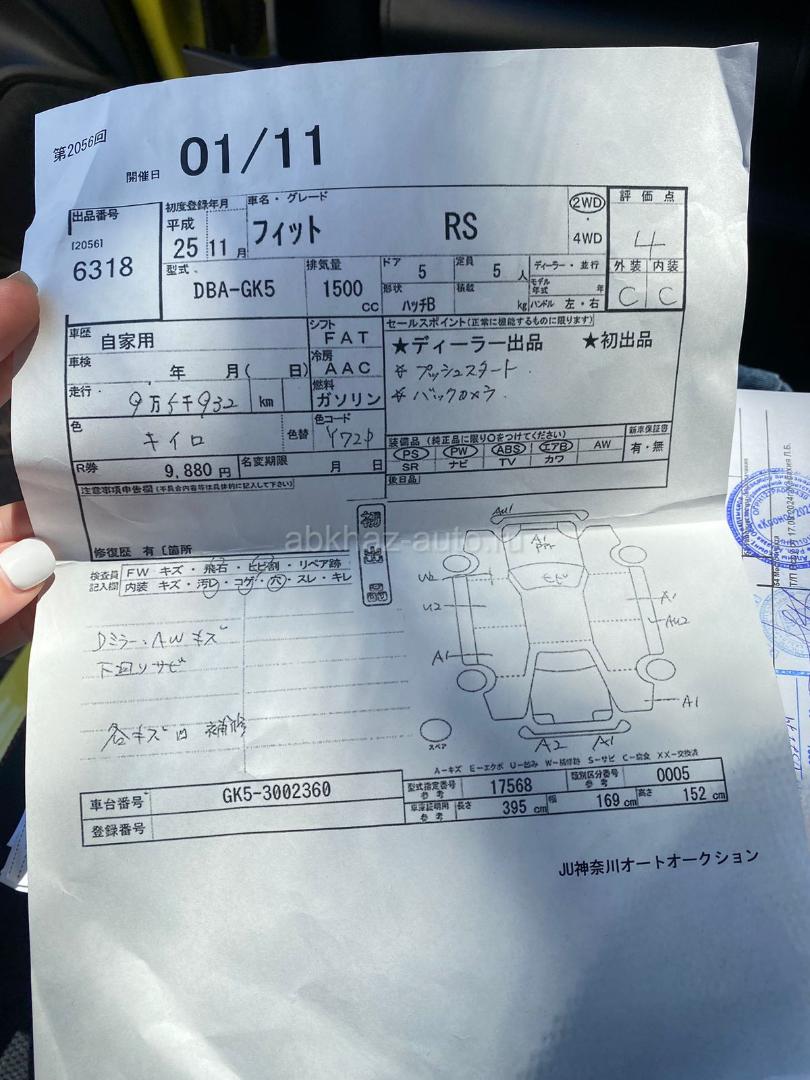 第2056回
開催日 01/11
出品番号
[2056]
6318
初度登録年月
平成
25 11 月
車名・グレード
フィット RS
2WD
・
4WD
評価点
4
外装 内装
C C
型式
DBA-GK5
排気量
1500 CC
ドア 5
定員 5 人
形状 ハッチB
積載 kg
ディーラー・並行
モデル年式 年
ハンドル 左・右
車歴 自家用
シフト FAT
車検 年 月( 日)
冷房 AAC
走行 9万 km
燃料 ガソリン
色 キイロ
色替
色コード
R券 9,880 円
名変期限 月 日
セールスポイント(正常に機能するものに限ります)
★ディーラー出品 ★初出品
☆ プッシュスタート
☆ バックカメラ
装備品(純正品に限り○をつけてください)
PS PW ABS エアB AW
SR ナビ TV カワ
新車保証書
有・無
後日品
注意事項申告欄(不具合内容等は具体的に記入して下さい)
修復歴 有 [箇所
abkhaz-auto.ru
検査員記入欄
FW キズ・飛石・ヒビ割・リペア跡
内装 キズ・汚レ・コゲ・穴・スレ・キレ
Dミラー、AWキズ
下回りサビ
各キズ凹 補修
A1
U2
A1
A1
AU2
A1
A2
スペア
A-キズ E-エクボ U-凹み W-補修跡 S-サビ C-腐食 XX-交換済
車台番号 GK5-3002360
登録番号
型式指定番号 参考 17568
類別区分番号 参考 0005
車庫証明用 参考 長さ 395 cm 幅 169 cm 高さ 152 cm
JU神奈川オートオークション